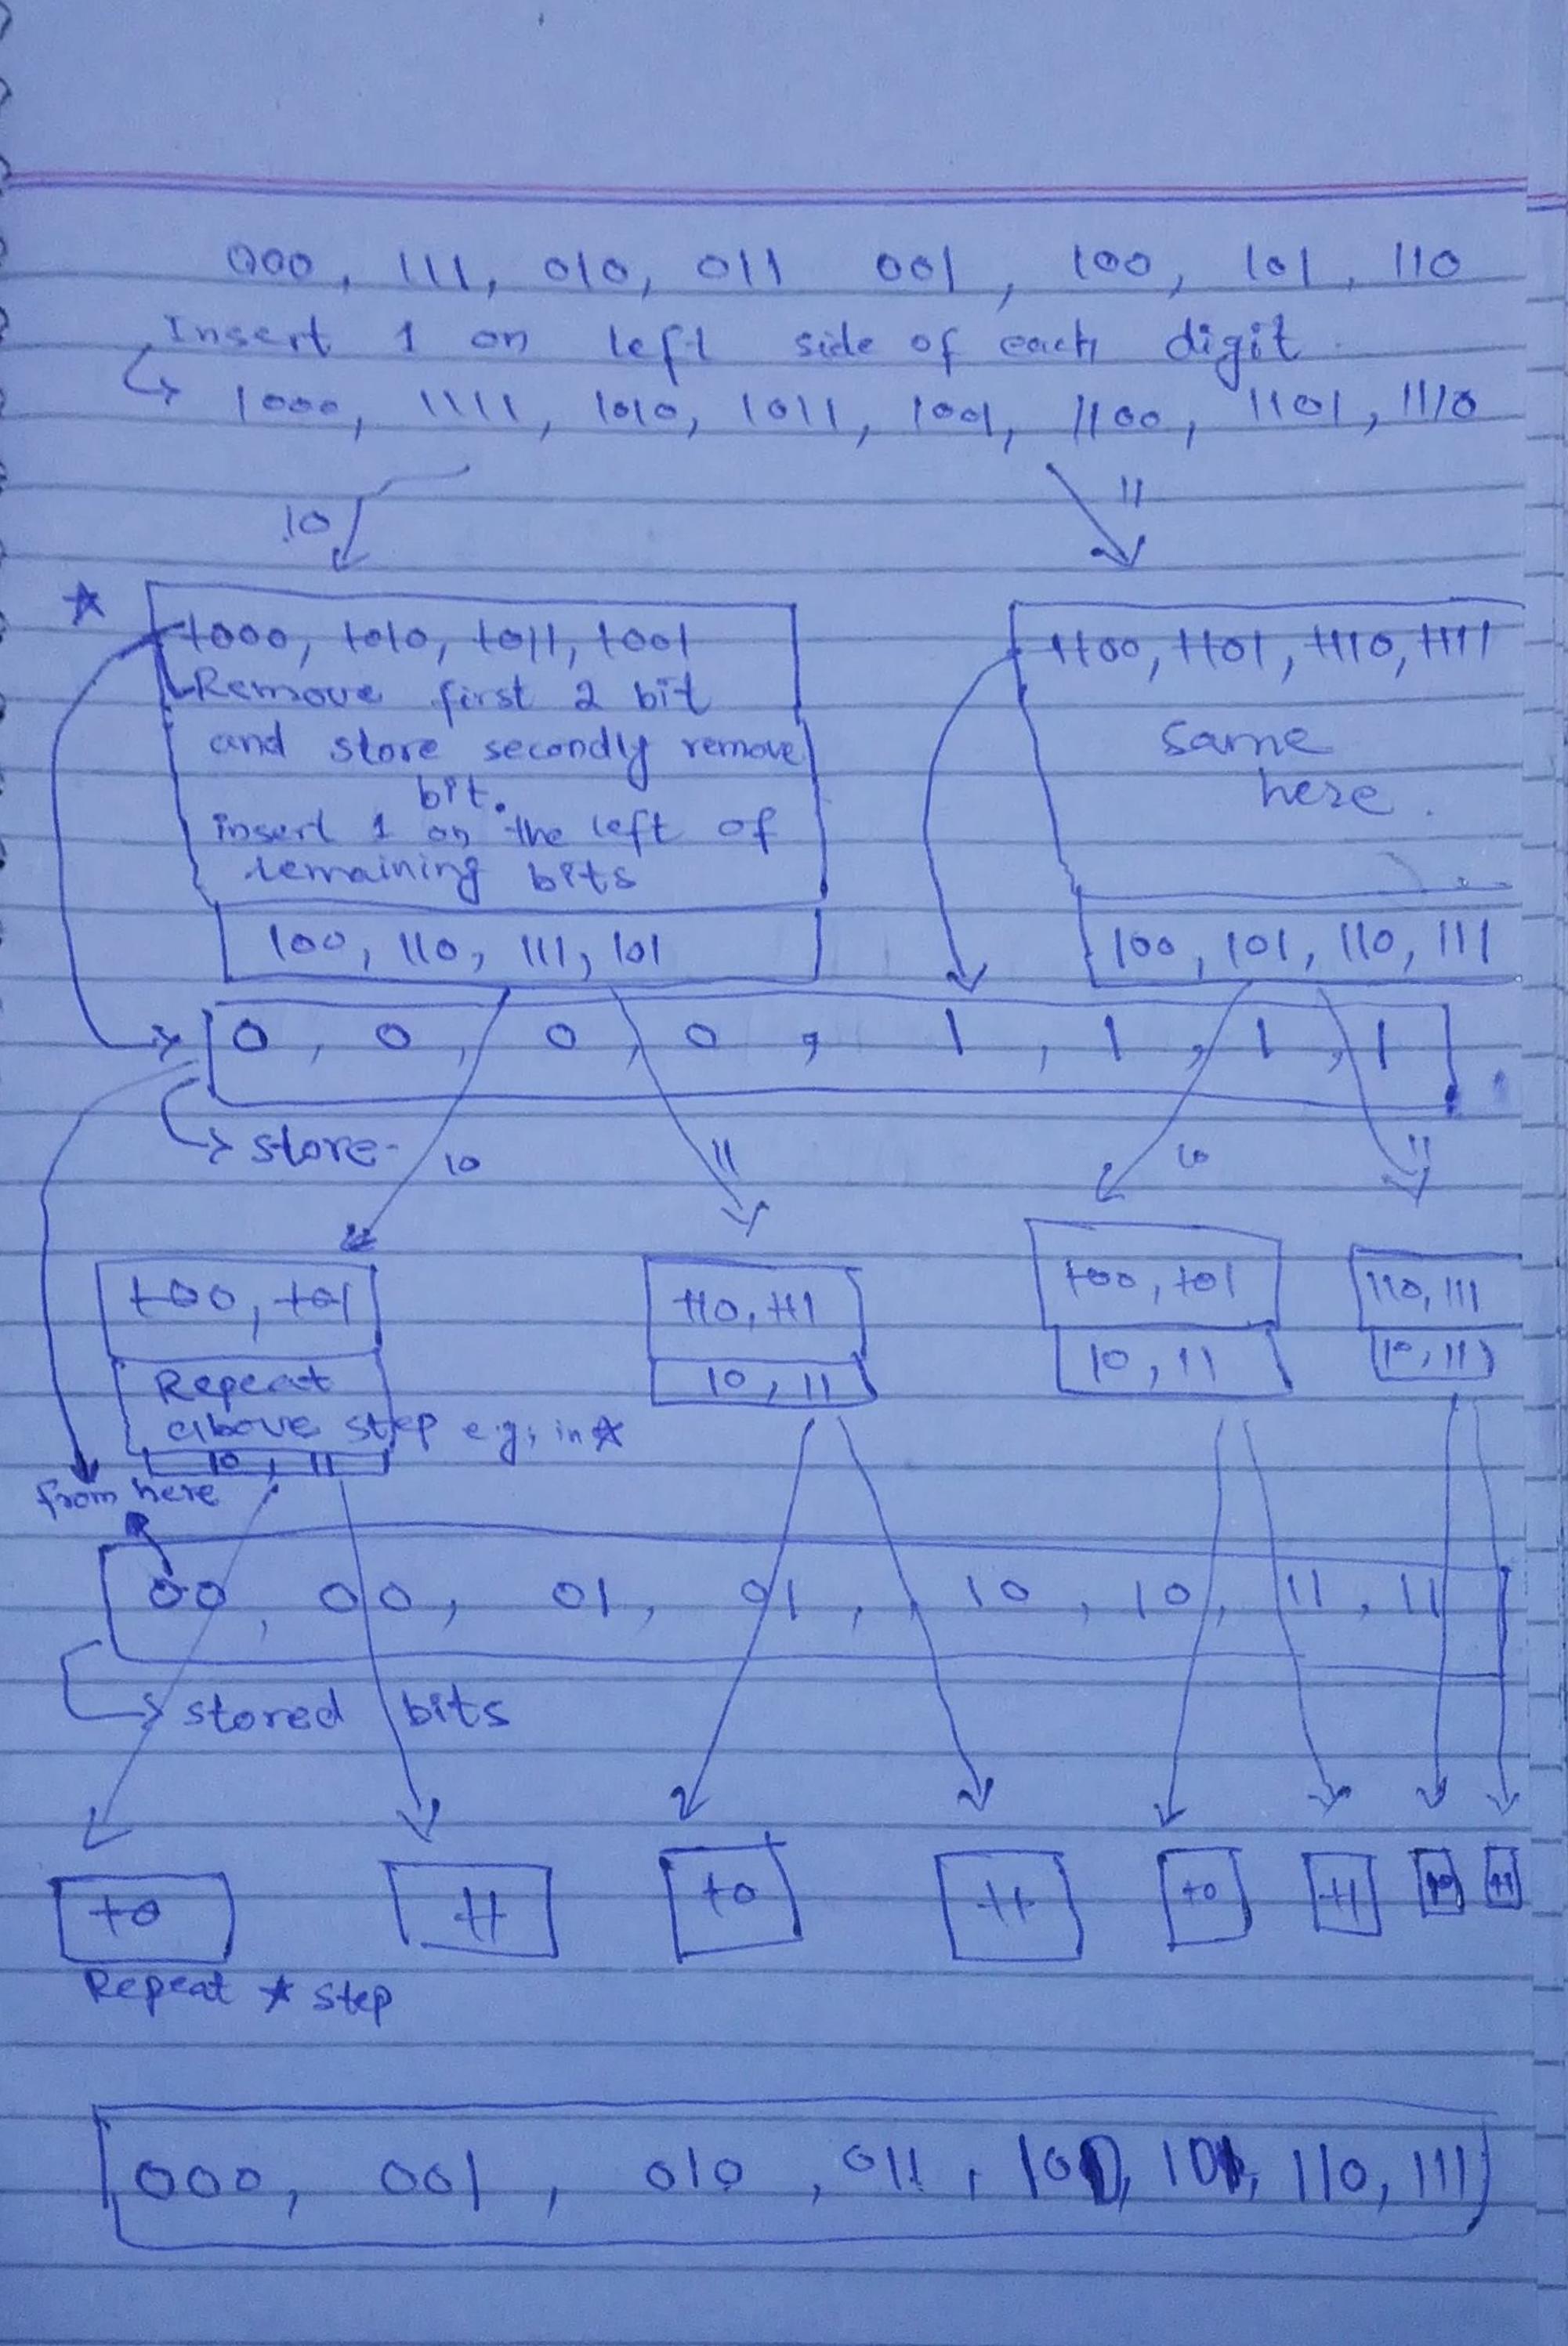 000, 111, 010, 011 001, 100, 101, 110
Insert 1 on left side of each digit.
1000, 1111, 1010, 1011, 1001, 1100, 1101, 1110
10
11
1000, 1010, 1011, 1001
Remove first 2 bit
and store secondly remove
bit.
insert 1 on the left of
remaining bits
100, 110, 111, 101
1100, 1101, 1110, 1111
same
here.
100, 101, 110, 111
0, 0, 0, 0, 1, 1, 1, 1
store-
10
11
10
11
100, 101
Repeat
above step e.g; in ☆
10, 11
110, 111
10, 11
100, 101
10, 11
110, 111
10, 11
from here
00, 00, 01, 01, 10, 10, 11, 11
stored bits
10
11
10
11
10
11
10
11
Repeat ☆ step
000, 001, 010, 011, 100, 101, 110, 111